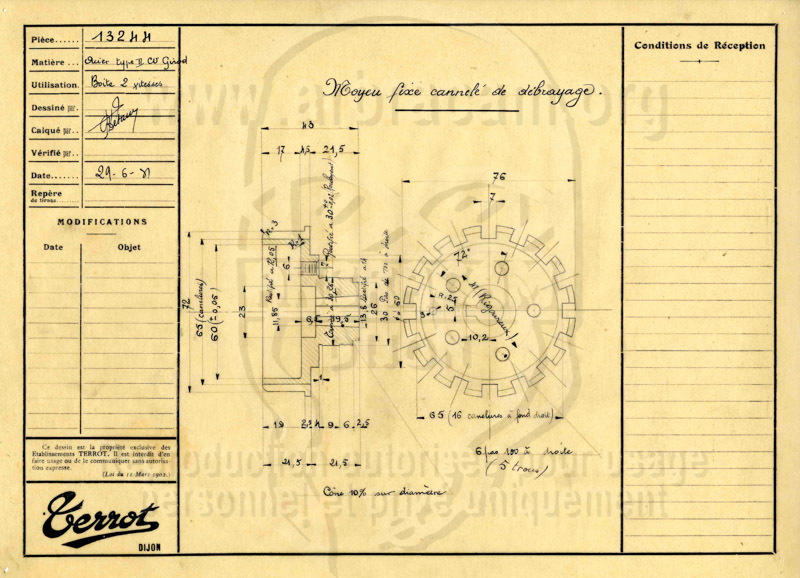 Pièce...... 13244
Matière... Acier type II CV Girod
Utilisation. Boîte 2 vitesses
Dessiné par.
Calqué par..
Vérifié par..
Date....... 29-6-31
Repère
de tirage
MODIFICATIONS
Date Objet
Moyeu fixe cannelé de débrayage.
Conditions de Réception
43
17 4,5 21,5
76
7
72°
72
65 (canelures)
60 (± 0,05)
23
11,85
6
6,5 19,5
13,8
26
30
60
3
5
10,2
1
19 9 6 2,5
21,5 21,5
65 (16 canelures à fond droit)
6 pas 100 à droite
(5 trous)
Cône 10% sur diamètre
Ce dessin est la propriété exclusive des
Etablissements TERROT. Il est interdit d'en
faire usage ou de le communiquer sans autorisa-
tion expresse.
(Loi du 11 Mars 1902.)
Terrot
DIJON
www.arbracam.org
reproduction autorisée pour usage
personnel et privé uniquement